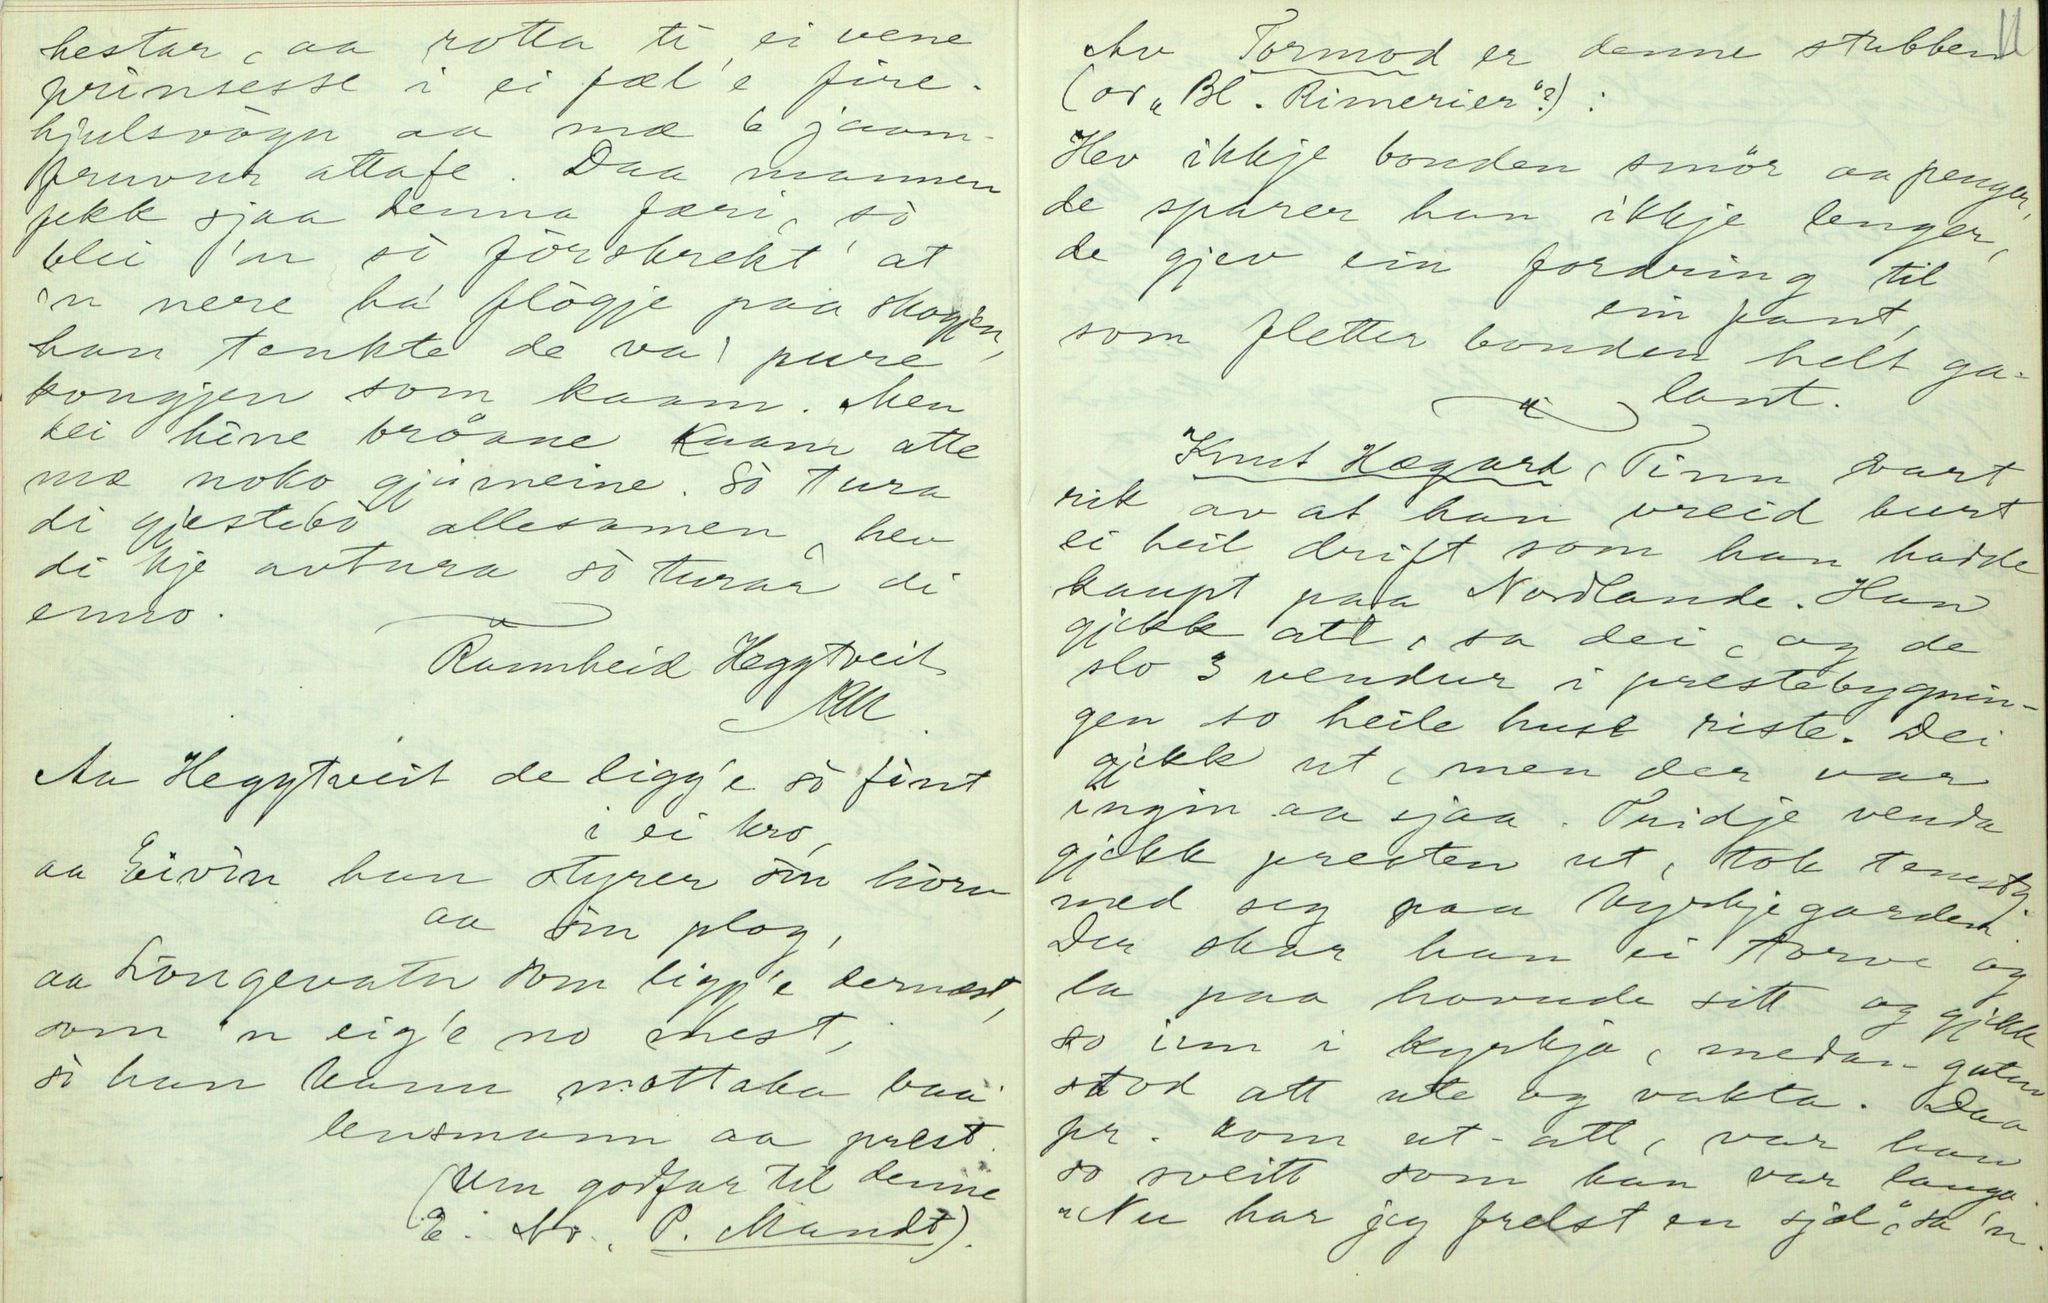 hestar, aa rotta ti ei vene
prinsesse i ei fæl'e fire-
hjulsvògn aa mæ 6 jaam-
fruvur attafe. Daa mannen
fekk sjaa denna færi, sò
blei 'n sò fòrskrekt' at
'n nere ha' flògje paa skogjen,
han tenkte de va' pure
kongjen som kaam. Men
dei hine brö̀ane kaam atte
mæ noko gjürneine. Sò tura
di gjestebò allesamen, hev
di kje avtura sò turar di
enno.
Rannheid Heggtveit

Aa Heggtveit de ligg'e sò fint
i ei kro,
aa Eivin han styrer sin hòrv
aa sin plog,
aa Lòngevatn som ligg'e dernæst,
som 'n eig'e no mest,
sò han kann mottaka baa'
lensmann aa prest.
(Um godfar til denne
E. Av. P. Mandt).
11
Av Tormod er denne stubben
(or „Bl. Rimerier"?):
Hev ikkje bonden smör aa pengar,
de sparer han ikkje lenger,
de gjev ein fordring til
ein fant,
som fletter bonden helt ga-
lant.
Knut Hægard, Tinn vart
rik av at han vreid burt
ei heil drift som han hadde
kaupt paa Nordlande. Han
gjekk att, sa dei, og de
slo 3 vendur i prestebygnin-
gen so heile huse riste. Dei
gjekk ut, men der var
ingin aa sjaa. Tridje venda
gjekk presten ut, tok tenestg.
med seg paa kyrkjegarden.
Der skar han ei torve og
la paa hovude sitt og gjekk
so inn i kyrkja, medan guten
stod att ute og vakta. Daa
pr. kom ut-att, var han
so sveitt som han var lauga.
„Nu har jeg frelst en sjæl", sa 'n.